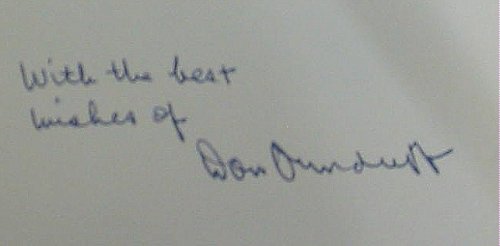 With the best
wishes of
Don